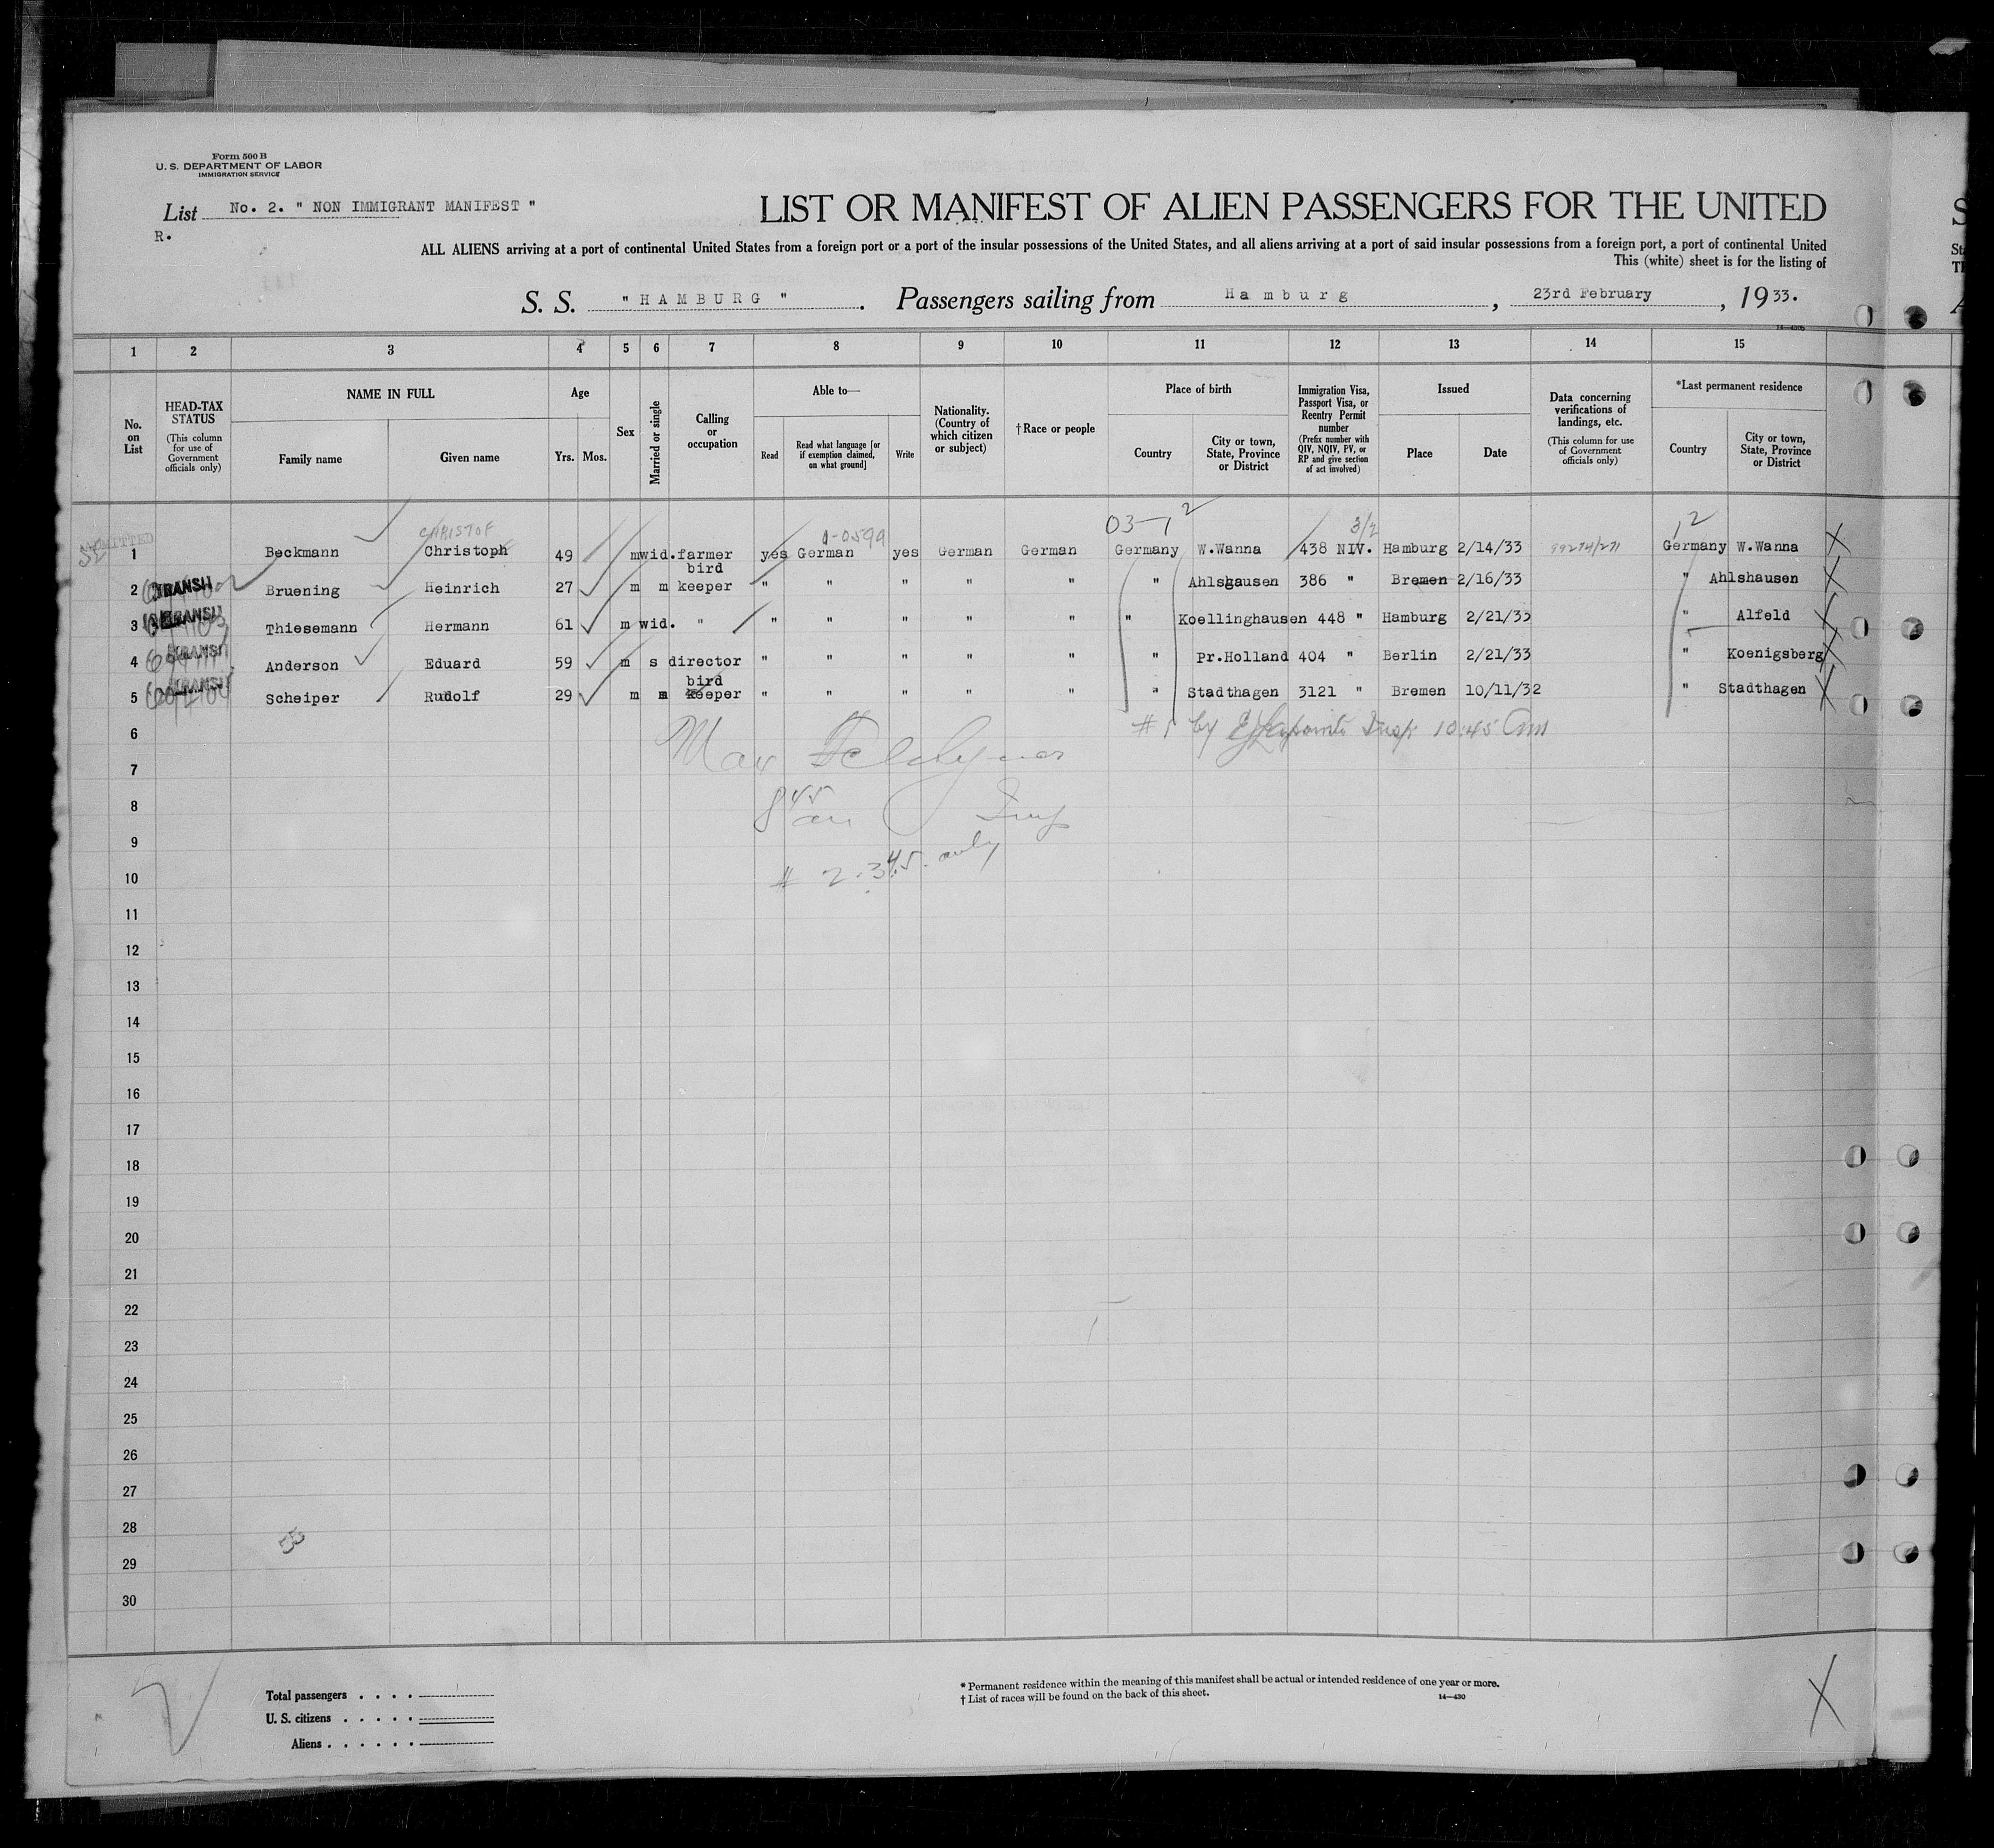 Form 500 B
U. S. DEPARTMENT OF LABOR
IMMIGRATION SERVICE
List No. 2. " NON IMMIGRANT MANIFEST "
R.
LIST OR MANIFEST OF ALIEN PASSENGERS FOR THE UNITED
ALL ALIENS arriving at a port of continental United States from a foreign port or a port of the insular possessions of the United States, and all aliens arriving at a port of said insular possessions from a foreign port, a port of continental United
This (white) sheet is for the listing of
S. S. " HAMBURG ". Passengers sailing from Hamburg, 23rd February, 1933.
1 2 3 4 5 6 7 8 9 10 11 12 13 14 15
No. on List
HEAD-TAX STATUS (This column for use of Government officials only)
NAME IN FULL
Family name Given name
Age
Yrs. Mos.
Sex
Married or single
Calling or occupation
Able to—
Read
Read what language [or if exemption claimed, on what ground]
Write
Nationality. (Country of which citizen or subject)
†Race or people
Place of birth
Country
City or town, State, Province or District
Immigration Visa, Passport Visa, or Reentry Permit number (Prefix number with QIV, NQIV, PV, or RP and give section of act involved)
Issued
Place Date
Data concerning verifications of landings, etc. (This column for use of Government officials only)
*Last permanent residence
Country
City or town, State, Province or District
ADMITTED CHRISTOF 03-1 2 3/2 1 2
1 Beckmann Christoph 49 m wid. farmer yes German yes German German Germany W.Wanna 438 NIV. Hamburg 2/14/33 Germany W.Wanna X
2 TRANSIT Bruening Heinrich 27 m m bird keeper " " " " " " Ahlshausen 386 " Bremen 2/16/33 " Ahlshausen X
3 TRANSIT Thiesemann Hermann 61 m wid. " " " " " " " Koellinghausen 448 " Hamburg 2/21/33 " Alfeld X
4 TRANSIT Anderson Eduard 59 m s director " " " " " " Pr.Holland 404 " Berlin 2/21/33 " Koenigsberg X
5 TRANSIT Scheiper Rudolf 29 m m bird keeper " " " " " " Stadthagen 3121 " Bremen 10/11/32 " Stadthagen X
6
# 1 by Insp 10:45 Am
Max
7
8
8 45 am Insp
9
# 2.3.4.5. only
10
11
12
13
14
15
16
17
18
19
20
21
22
23
24
25
26
27
28
29
30
Total passengers
U. S. citizens
Aliens
* Permanent residence within the meaning of this manifest shall be actual or intended residence of one year or more.
† List of races will be found on the back of this sheet.
14—430
X